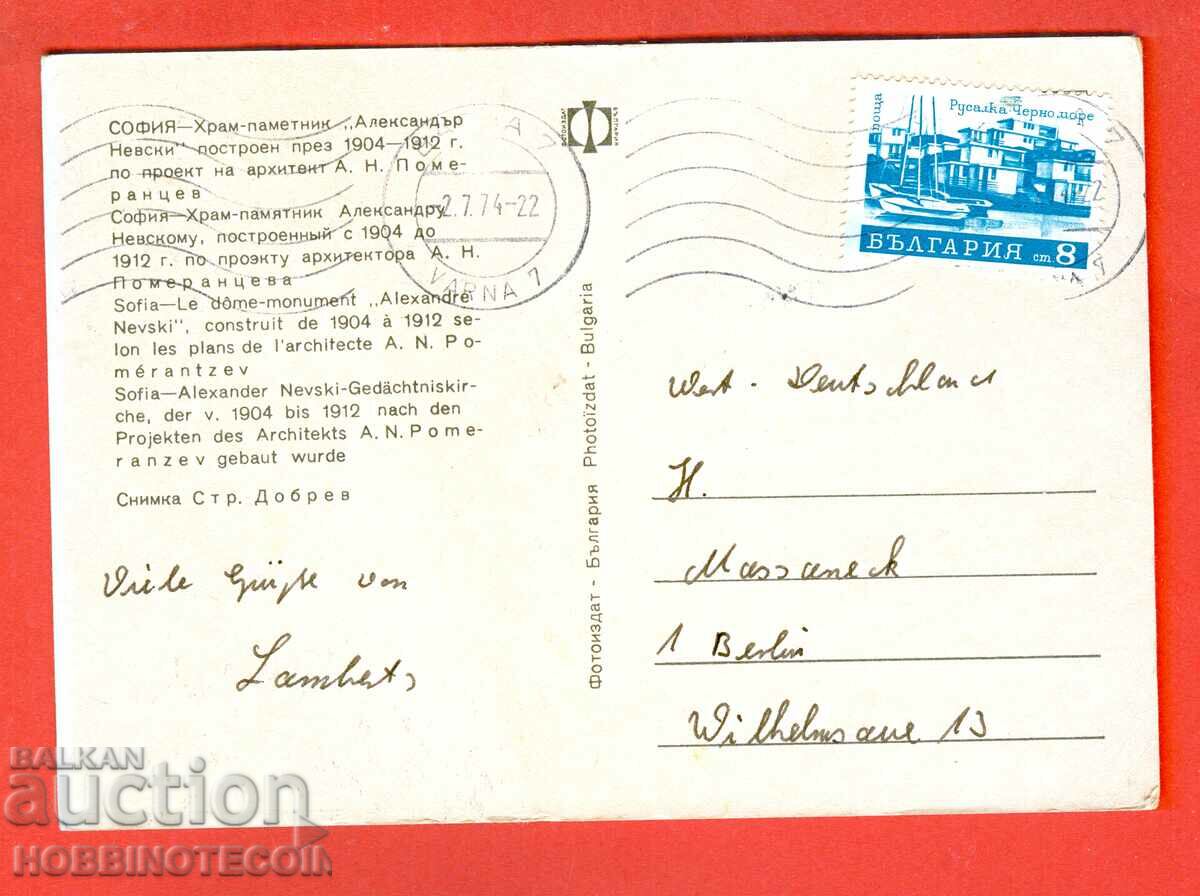 СОФИЯ—Храм-паметник „Александър
Невски" построен през 1904—1912 г.
по проект на архитект А. Н. Поме-
ранцев
София—Храм-памятник Александру
Невскому, построенный с 1904 до
1912 г. по проэкту архитектора А. Н.
Померанцева
Sofia—Le dôme-monument „Alexandre
Nevski", construit de 1904 à 1912 se-
lon les plans de l'architecte A. N. Po-
mérantzev
Sofia—Alexander Nevski-Gedächtniskir-
che, der v. 1904 bis 1912 nach den
Projekten des Architekts A. N. Pome-
ranzev gebaut wurde
Снимка Стр. Добрев
Viele Grüße von
Lamberts
2.7.74-22
VARNA 7
Фотоиздат - България Photoïzdat - Bulgaria
поща
Русалка Черно море
БЪЛГАРИЯ ст. 8
West-Deutschland
H.
Massaneck
1 Berlin
Wilhelmsaue 13
BALKAN
auction
HOBBINOTECOIN